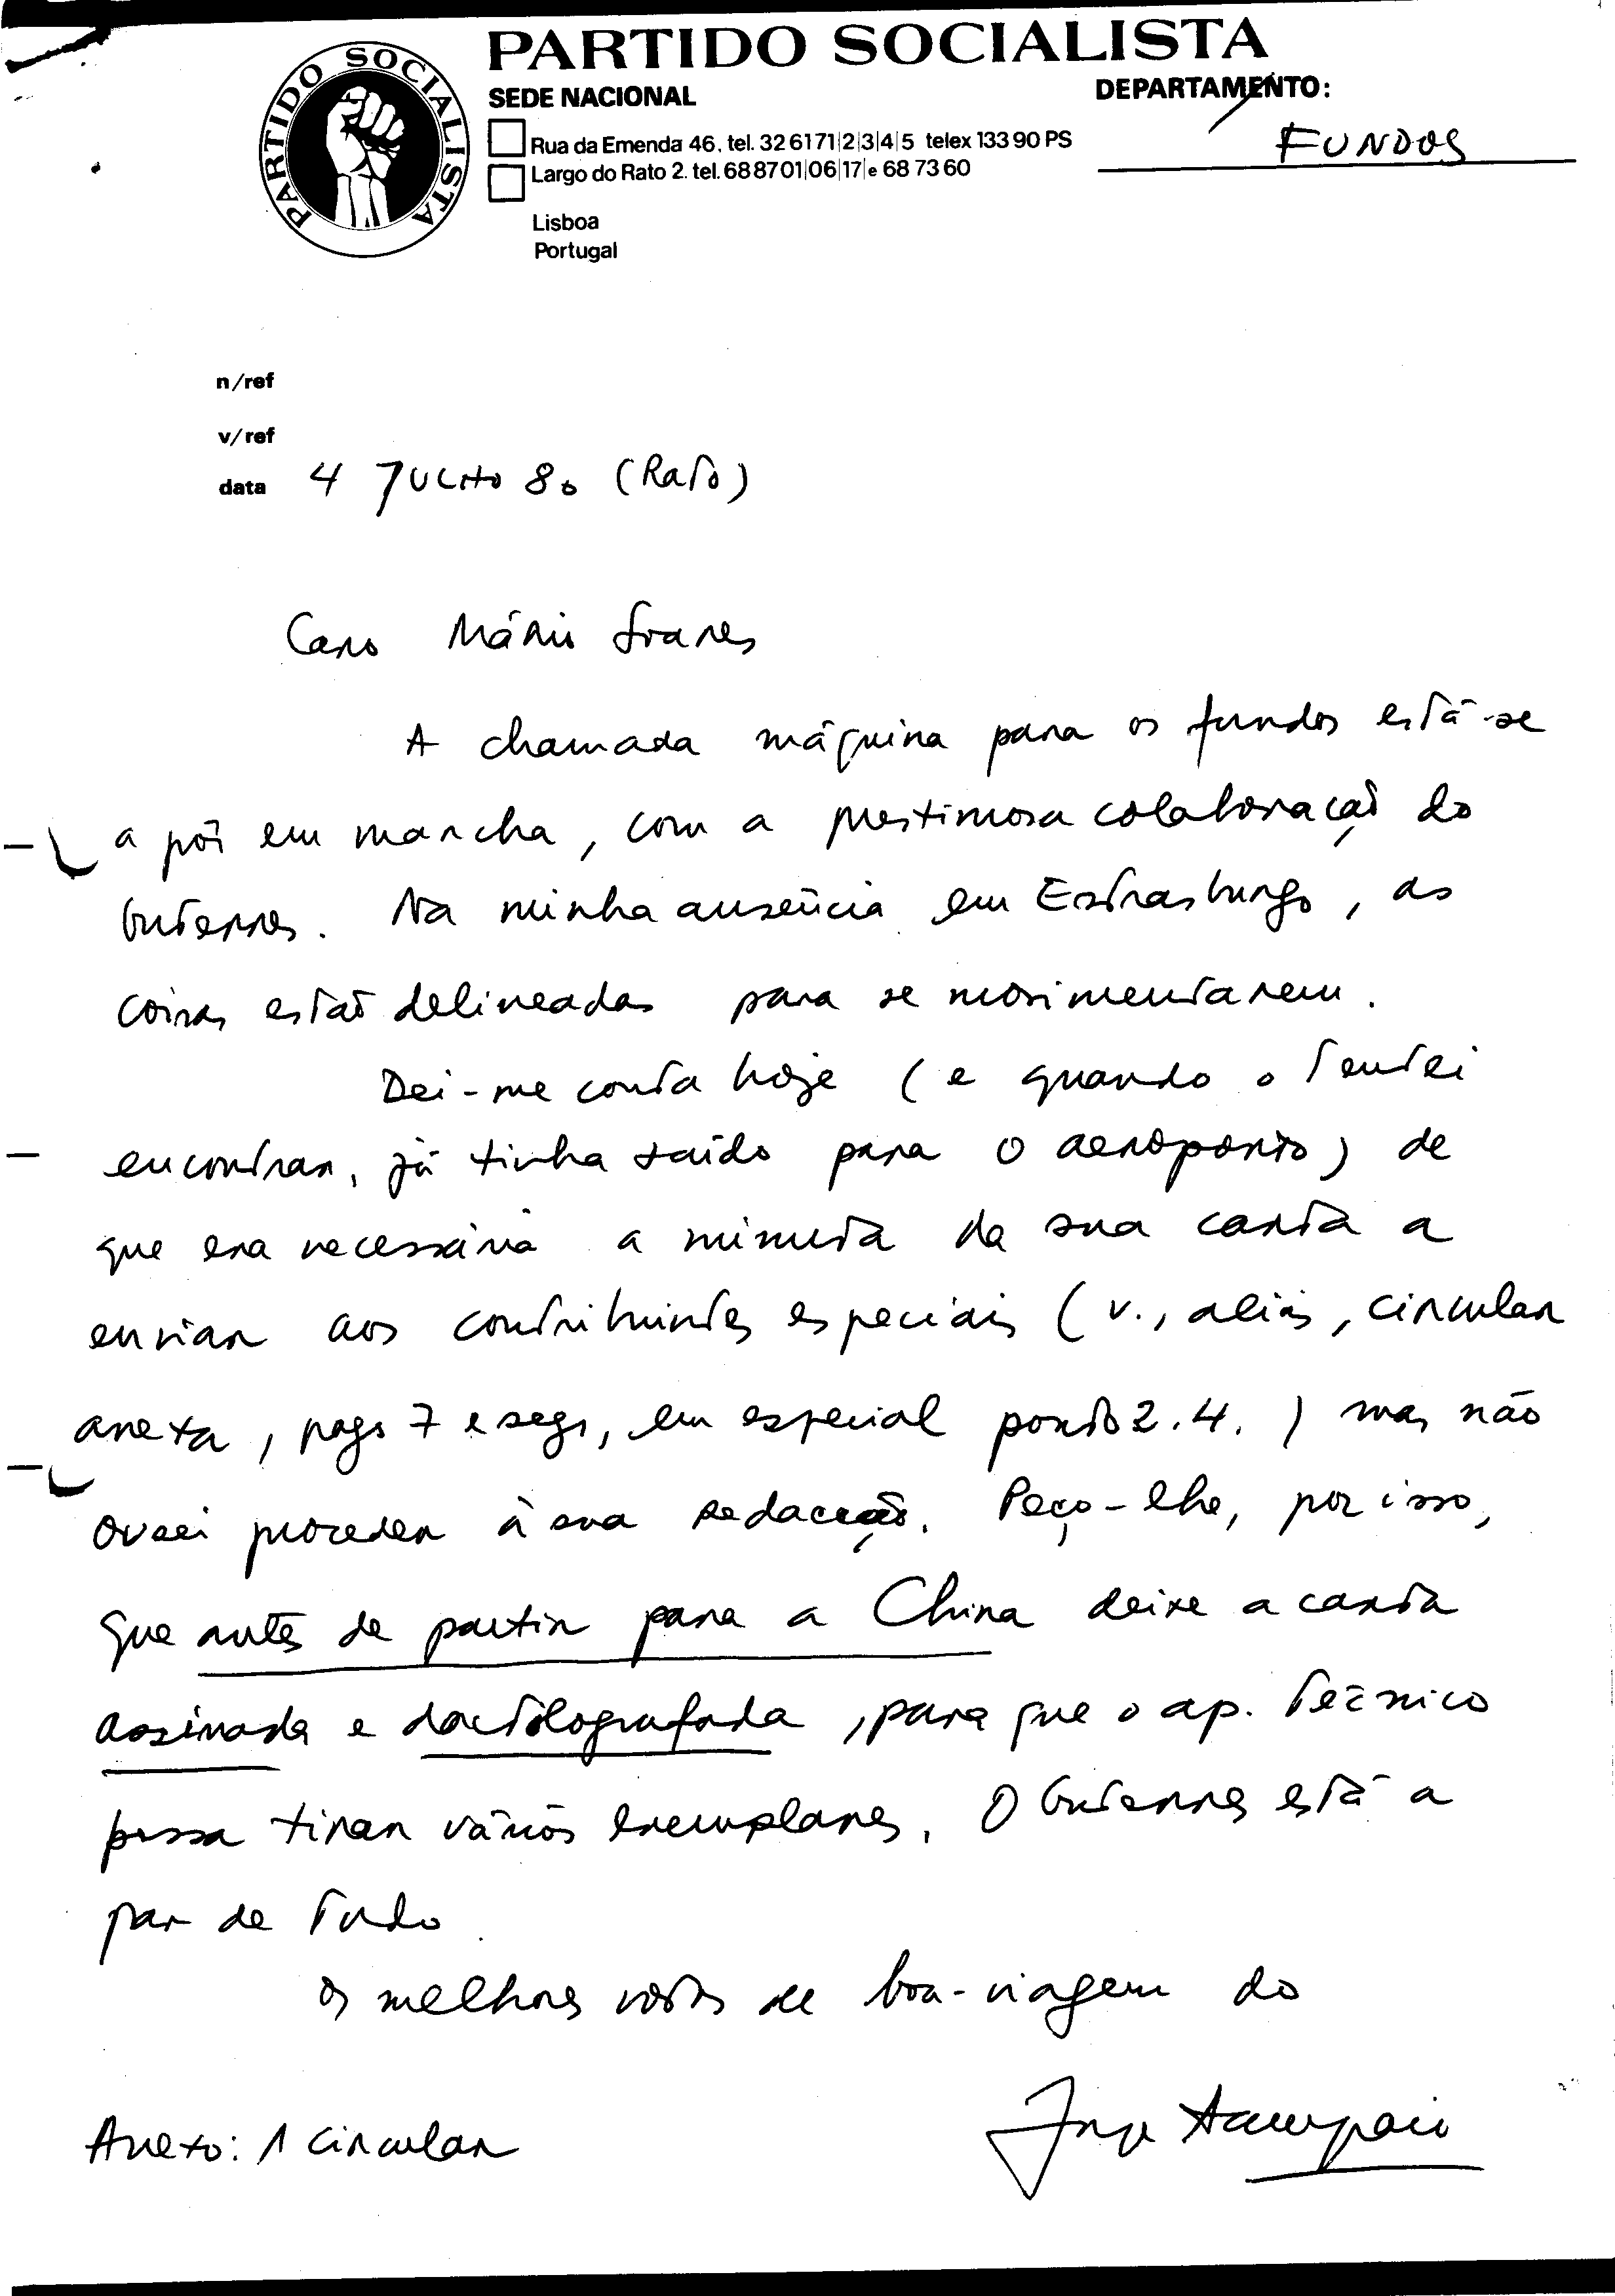 PARTIDO SOCIALISTA
PARTIDO SOCIALISTA
SEDE NACIONAL
DEPARTAMENTO:
FUNDOS
Rua da Emenda 46. tel. 32 61 71|2|3|4|5 telex 133 90 PS
Largo do Rato 2. tel. 68 87 01|06|17|e 68 73 60
Lisboa
Portugal
n/ref
v/ref
data 4 JULHO 80 (Rato)
Caro Mário Soares
A chamada máquina para os fundos está-se
a pôr em marcha, com a prestimosa colaboração do
Guterres. Na minha ausência em Estrasburgo, as
coisas estão delineadas para se movimentarem.
Dei-me conta hoje (e quando o tentei
encontrar, já tinha saído para o aeroporto) de
que era necessária a minuta da sua carta a
enviar aos contribuintes especiais (v., aliás, circular
anexa, pags 7 e segs, em especial ponto 2.4.) mas não
ousei proceder à sua redacção. Peço-lhe, por isso,
que antes de partir para a China deixe a carta
assinada e dactilografada, para que o ap. técnico
possa tirar vários exemplares. O Guterres está a
par de tudo.
Os melhores votos de boa-viagem do
Jorge Sampaio
Anexo: 1 circular